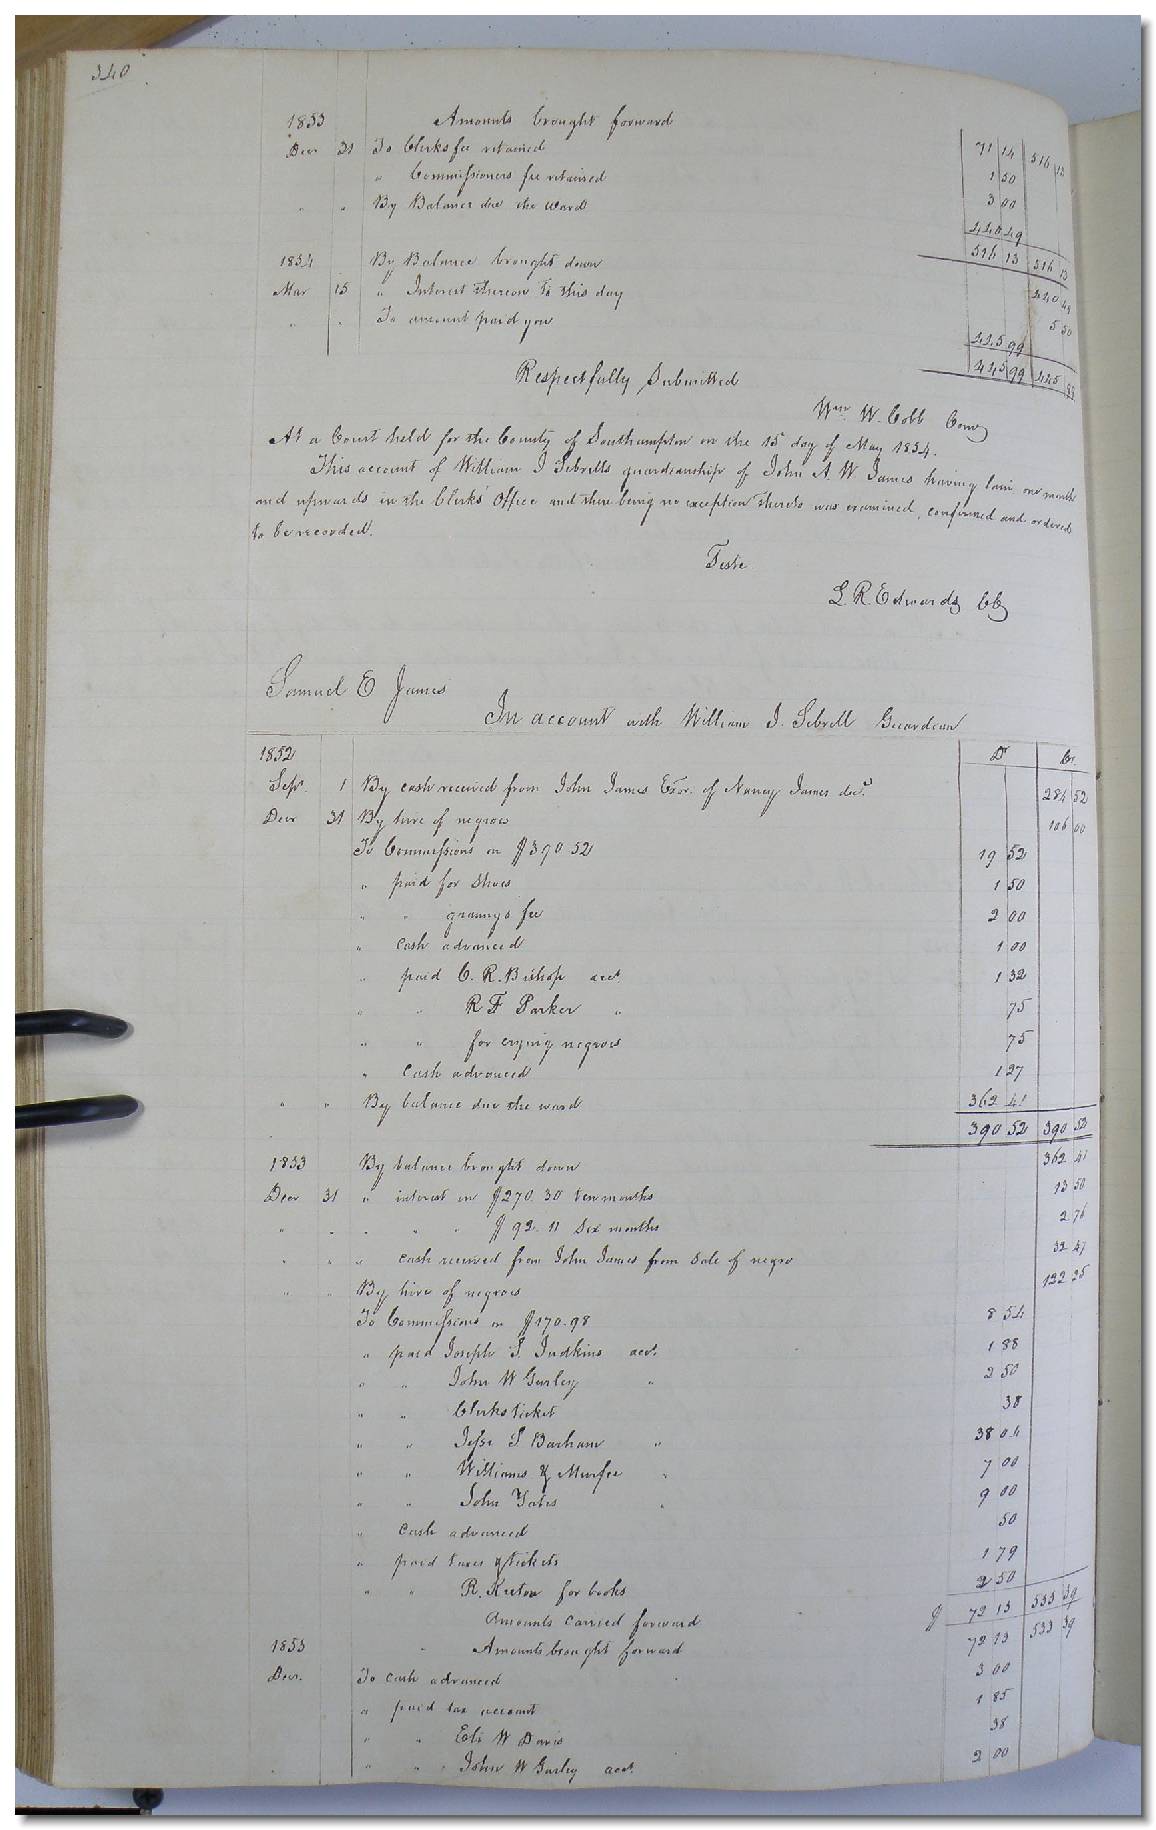 340
1853 Amounts brought forward 71 14 516 13
Decr 31 To Clerks fee retained 1 50
" Commissioners fee retained 3 00
" " By Balance due the ward 440 49
516 13 516 13
1854 By Balance brought down 440 49
Mar 15 " Interest thereon to this day 5 50
" " To amount paid you 445 99
445 99 445 99
Respectfully Submitted
Wm. W. Cobb Comr
At a Court held for the County of Southampton on the 15 day of May 1854.
This account of William J Sebrells guardianship of John A. W. James having lain one month
and upwards in the Clerks' Office and there being no exception thereto was examined, confirmed and ordered
to be recorded.
Teste
L. R. Edwards CC
Samuel E James
In account with William J. Sebrell Guardian
1852 Dr Cr.
Sept. 1 By cash received from John James Exor. of Nancy James decd. 284 52
Decr 31 By hire of negroes 106 00
To Commissions on $390 52 19 52
" paid for Shoes 1 50
" " grannys fee 2 00
" cash advanced 1 00
" paid C. R. Bishop acct. 1 32
" " R F Parker " 75
" " for crying negroes 75
" Cash advanced 1 27
" " By balance due the ward 362 41
390 52 390 52
1853 By balance brought down 362 41
Decr 31 " interest on $270 30 ten months 13 50
" " " " $92. 11 Six months 2 76
" " " cash received from John James from Sale of negro 32 47
" " By hire of negroes 122 25
To Commissions on $170.98 8 54
" paid Joseph S. Judkins acct. 1 88
" " John W Gurley " 2 50
" " Clerks ticket 38
" " Jesse S Barham " 38 04
" " Williams & Murfee " 7 00
" " John Yates " 9 00
" Cash advanced 50
" paid taxes & tickets 1 79
" " R. for books 2 50
Amounts carried forward $ 72 13 533 39
1853 " Amounts brought forward 72 13 533 39
Decr. To cash advanced 3 00
" paid tax account 1 85
" " Eli W Davis 38
" " " John W Gurley acct. 2 00